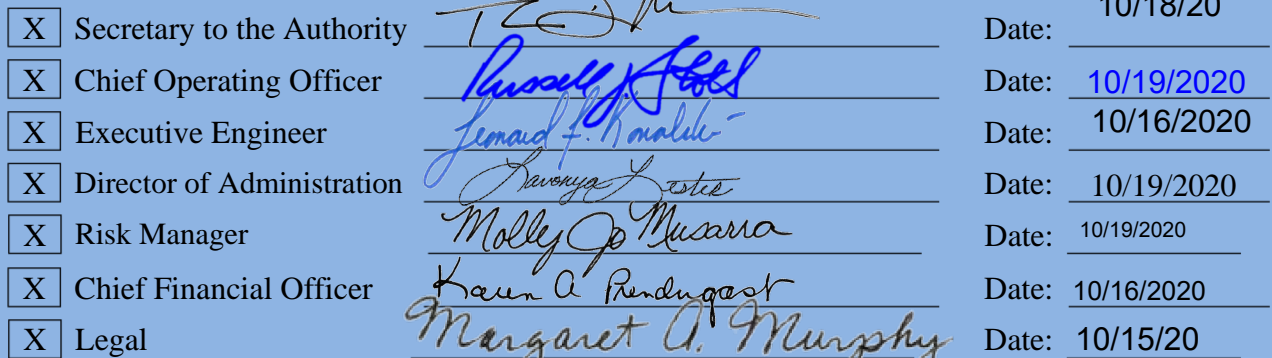 X Secretary to the Authority Date: 10/18/20
X Chief Operating Officer Russell J Stoll Date: 10/19/2020
X Executive Engineer Leonard F. Kowalski Date: 10/16/2020
X Director of Administration Lavonya Lester Date: 10/19/2020
X Risk Manager Molly Jo Musarra Date: 10/19/2020
X Chief Financial Officer Karen A Prendergast Date: 10/16/2020
X Legal Margaret A. Murphy Date: 10/15/20